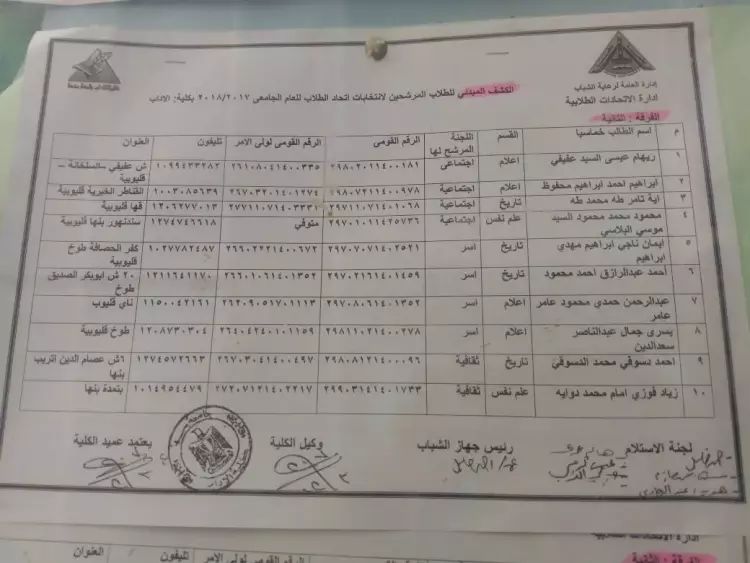 إدارة العامة لرعاية الشباب
إدارة الاتحادات الطلابية
الكشف المبدئي للطلاب المرشحين لانتخابات اتحاد الطلاب للعام الجامعى ٢٠١٨/٢٠١٧ بكلية: الاداب
الفرقة : الثانية
م اسم الطالب خماسيا القسم اللجنة المرشح لها الرقم القومى الرقم القومى لولى الامر تليفون العنوان
١ ريهام عيسى السيد عفيفي اعلام اجتماعى ٢٩٨٠٢٠١١٤٠٠١٨١ ٢٦١٠٨٠٤١٤٠٠٣٣٥ ١٠٩٩٤٣٣٢٨٢ ش عفيفي – السلخانة – قليوبية
٢ ابراهيم احمد ابراهيم محفوظ اعلام اجتماعية ٢٩٨٠٧٢١١٤٠٠٩٧٨ ٢٦٧٠٣٢٠١٤٠١٢٧٤ ١٠٠٣٠٨٥٦٣٩ القناطر الخيرية قليوبية
٣ اية تامر طه محمد طه تاريخ اجتماعية ٢٩٧١١٠٧١٤٠١٠٦٨ ٢٧٧١١٠٧١٤٠٣٣٣١ ١٢٠٦٢٧٧٠١٣ قها قليوبية
٤ محمود محمد محمود السيد موسي البلاسي علم نفس اجتماعية ٢٩٧٠١٠١١٤٢٥٧٣٦ متوفي ١٢٧٤٧٤٦٦١٨ سندنهور بنها قليوبية
٥ ايمان ناجي ابراهيم مهدي ابراهيم تاريخ اسر ٢٩٧٠٧٠٧١٤٠٢٥٢١ ٢٦٦٠٢٢٢١٤٠٠٦٧٢ ١٠٢٧٧٨٢٤٨٧ كفر الحصافة طوخ قليوبية
٦ احمد عبدالرازق احمد محمود تاريخ اسر ٢٩٧٠٢١٦١٤٠١٤٥٩ ٢٦٦٠١٠٦١٤٠١٣٥٢ ١٢١١٦٤١١٧٠ ٢٠ ش ابوبكر الصديق طوخ
٧ عبدالرحمن حمدي محمود عامر عامر اعلام اسر ٢٩٧٠٨٠٦١٤٠١٣٥٢ ٢٦٢٠٩٠٥١٧٠١١١٣ ١١٥٠٠٤٢١٦١ ناي قليوب
٨ يسرى جمال عبدالناصر سعدالدين اعلام اسر ٢٩٨١١٠٢١٤٠٠٢٧٨ ٢٦٤٠٤٢٤٠١٠١١٥٩ ١٢٠٨٧٣٠٣٠٤ طوخ قليوبية
٩ احمد دسوقي محمد الدسوقي تاريخ ثقافية ٢٩٨٠٨١٢١٤٠٠٠٩٦ ٢٦٧٠٣٠٤١٤٠٠٤٩٧ ١٢٧٤٥٧٢٦٦٣ ٦ش عصام الدين اتريب بنها
١٠ زياد فوزي امام محمد دوايه علم نفس ثقافية ٢٩٩٠٣١٤١٤٠١٧٣٣ ٢٧٢٠٧١٢١٤٠٢٢١٧ ١٠١٤٩٥٤٤٧٩ بتمدة بنها
لجنة الاستلام رئيس جهاز الشباب وكيل الكلية يعتمد عميد الكلية
ادارة الاتحادات الطلابية
الفرقة : الثانية
الرقم القومى الرقم القومى لولى الامر تليفون العنوان